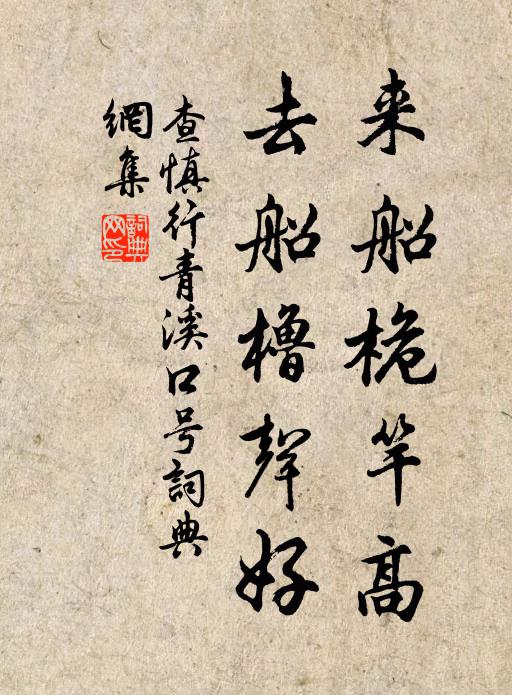 来船桅竿高
去船櫓聲好
查慎行青溪口号詞典
網集
詞典
网印